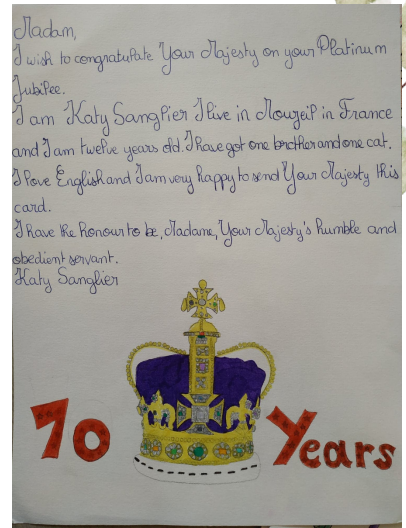 Madam,
I wish to congratulate Your Majesty on your Platinum
Jubilee.
I am Katy Sanglier I live in Mouzeil in France
and I am twelve years old. I have got one brother and one cat.
I love English and I am very happy to send Your Majesty this
card.
I have the honour to be, Madame, Your Majesty's humble and
obedient servant.
Katy Sanglier
70 Years